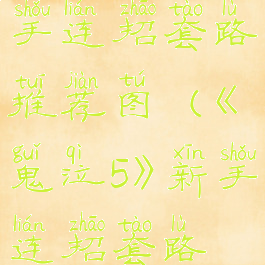 shǒu lián zhāo tào lù
手连招套路
tuī jiàn tú
推荐图（《
guǐ qì xīn shǒu
鬼泣5》新手
lián zhāo tào lù
连招套路